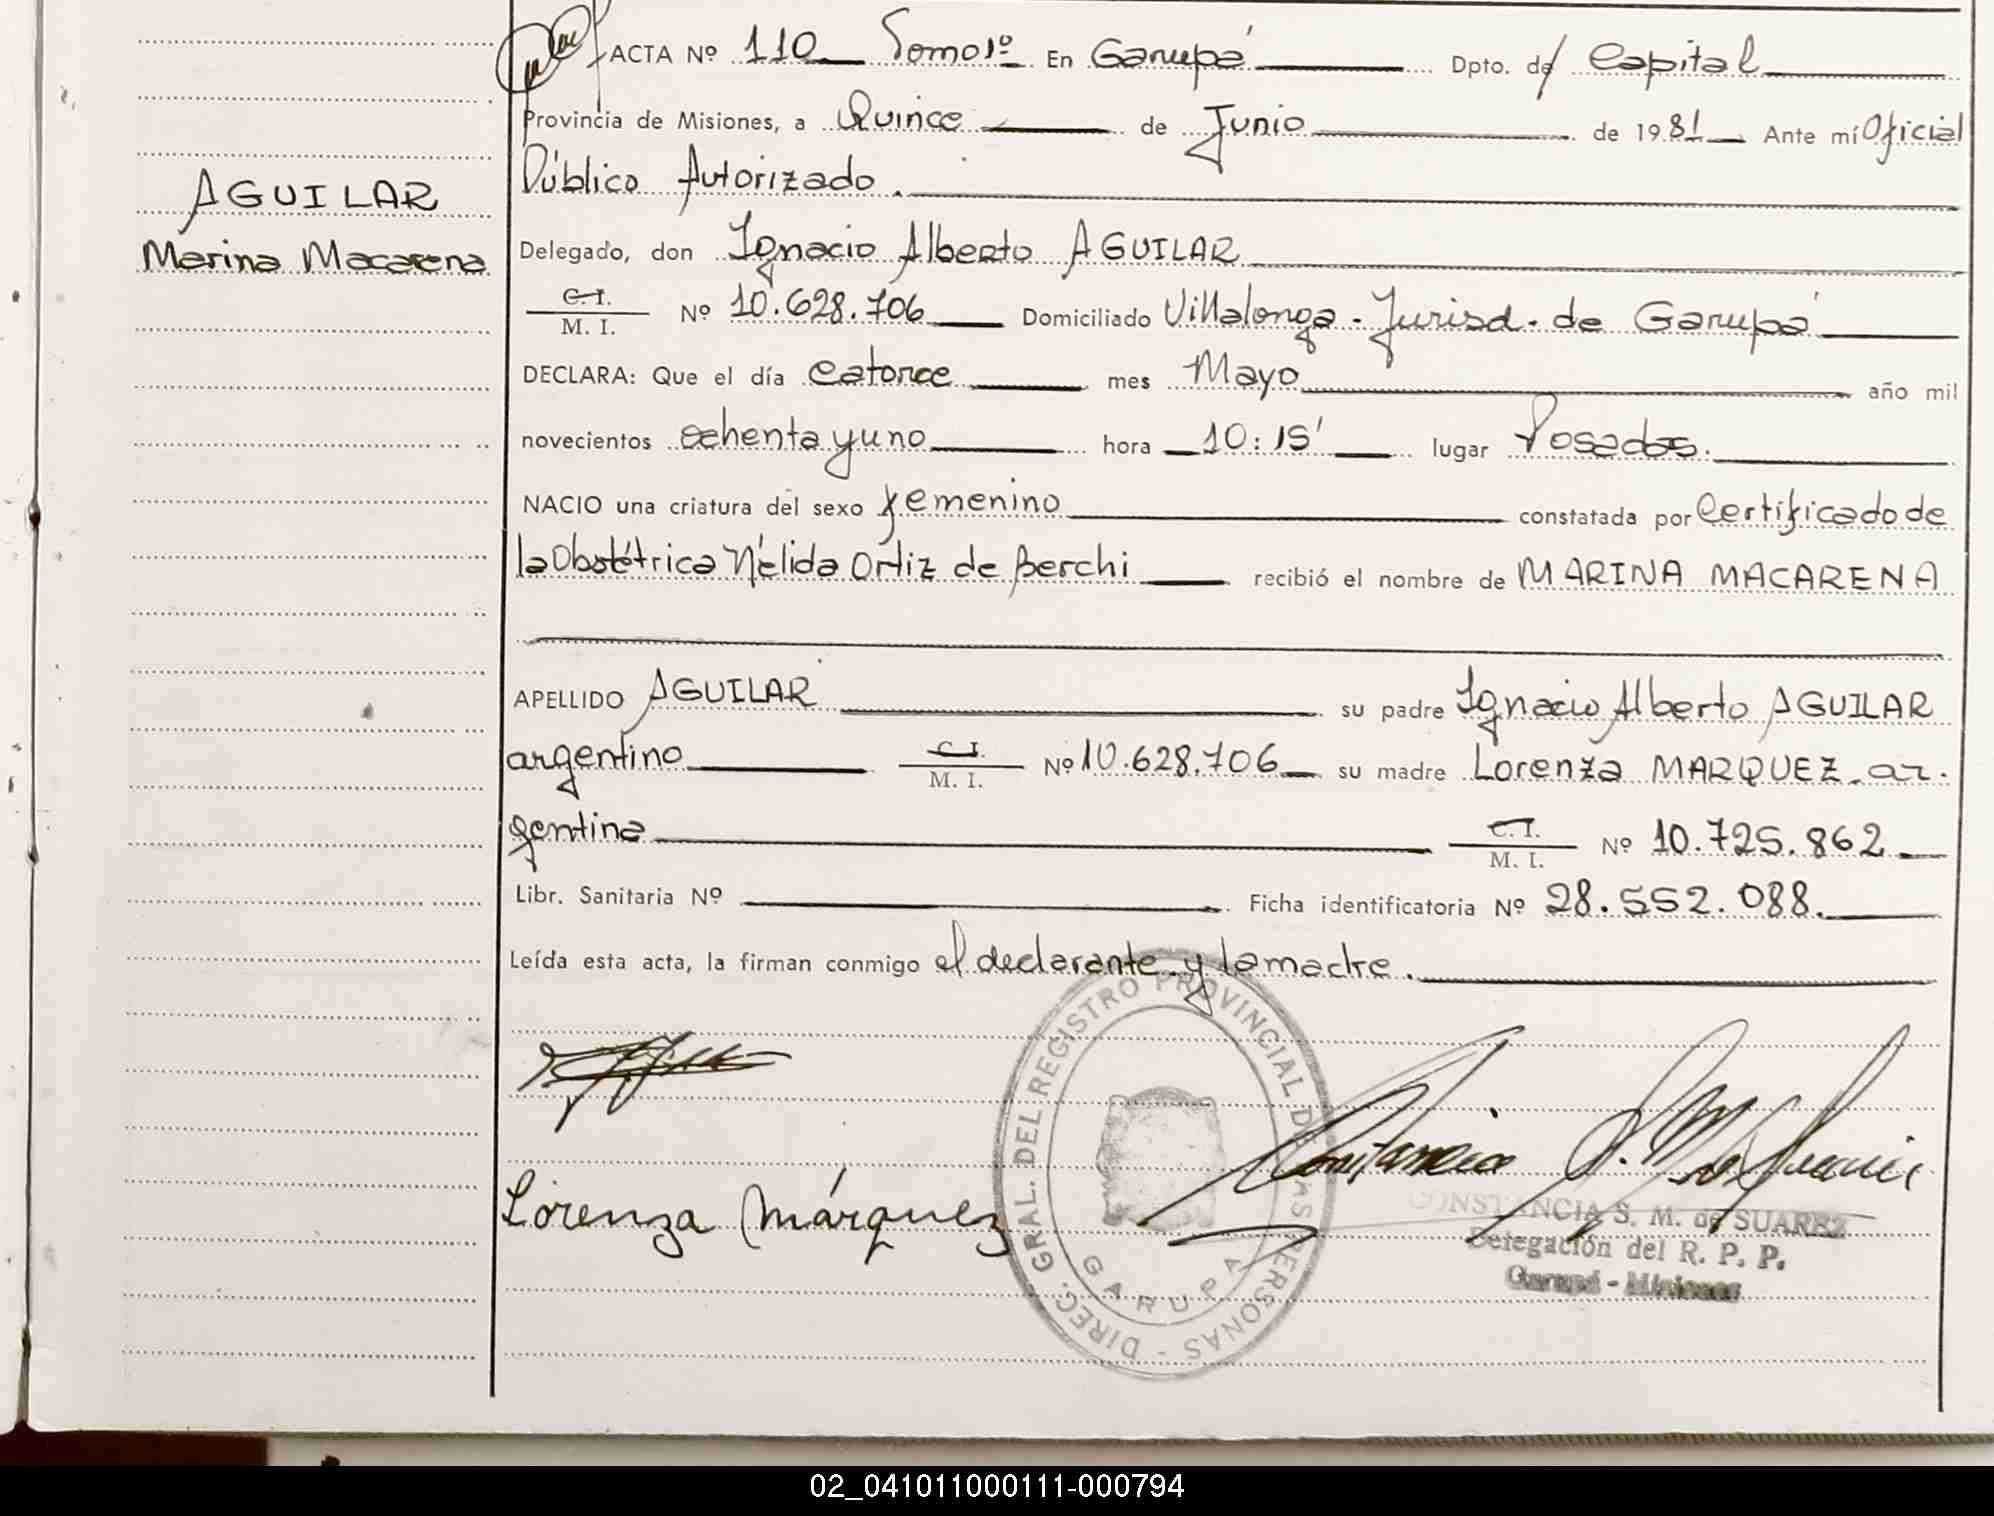 ACTA Nº 110 Tomo 1º En Garupá Dpto. de Capital
Provincia de Misiones, a Quince de Junio de 1981 Ante mí Oficial
Público Autorizado.
AGUILAR
Marina Macarena
Delegado, don Ignacio Alberto AGUILAR
C. I.
M. I. Nº 10.628.706 Domiciliado Villalonga - Jurisd. de Garupá
DECLARA: Que el día Catorce mes Mayo año mil
novecientos ochenta y uno hora 10:15' lugar Posadas.
NACIO una criatura del sexo femenino constatada por Certificado de
la Obstétrica Nélida Ortiz de Berchi recibió el nombre de MARINA MACARENA
APELLIDO AGUILAR su padre Ignacio Alberto AGUILAR
argentino C. I.
M. I. Nº 10.628.706 su madre Lorenza MARQUEZ - ar-
gentina C. I.
M. I. Nº 10.725.862
Libr. Sanitaria Nº Ficha identificatoria Nº 28.552.088.
Leída esta acta, la firman conmigo el declarante y la madre.
Lorenza Márquez
DIREC. GRAL. DEL REGISTRO PROVINCIAL DE LAS PERSONAS -
GARUPA
CONSTANCIA S. M. de SUAREZ
Delegación del R. P. P.
Garupá - Misiones
02_041011000111-000794